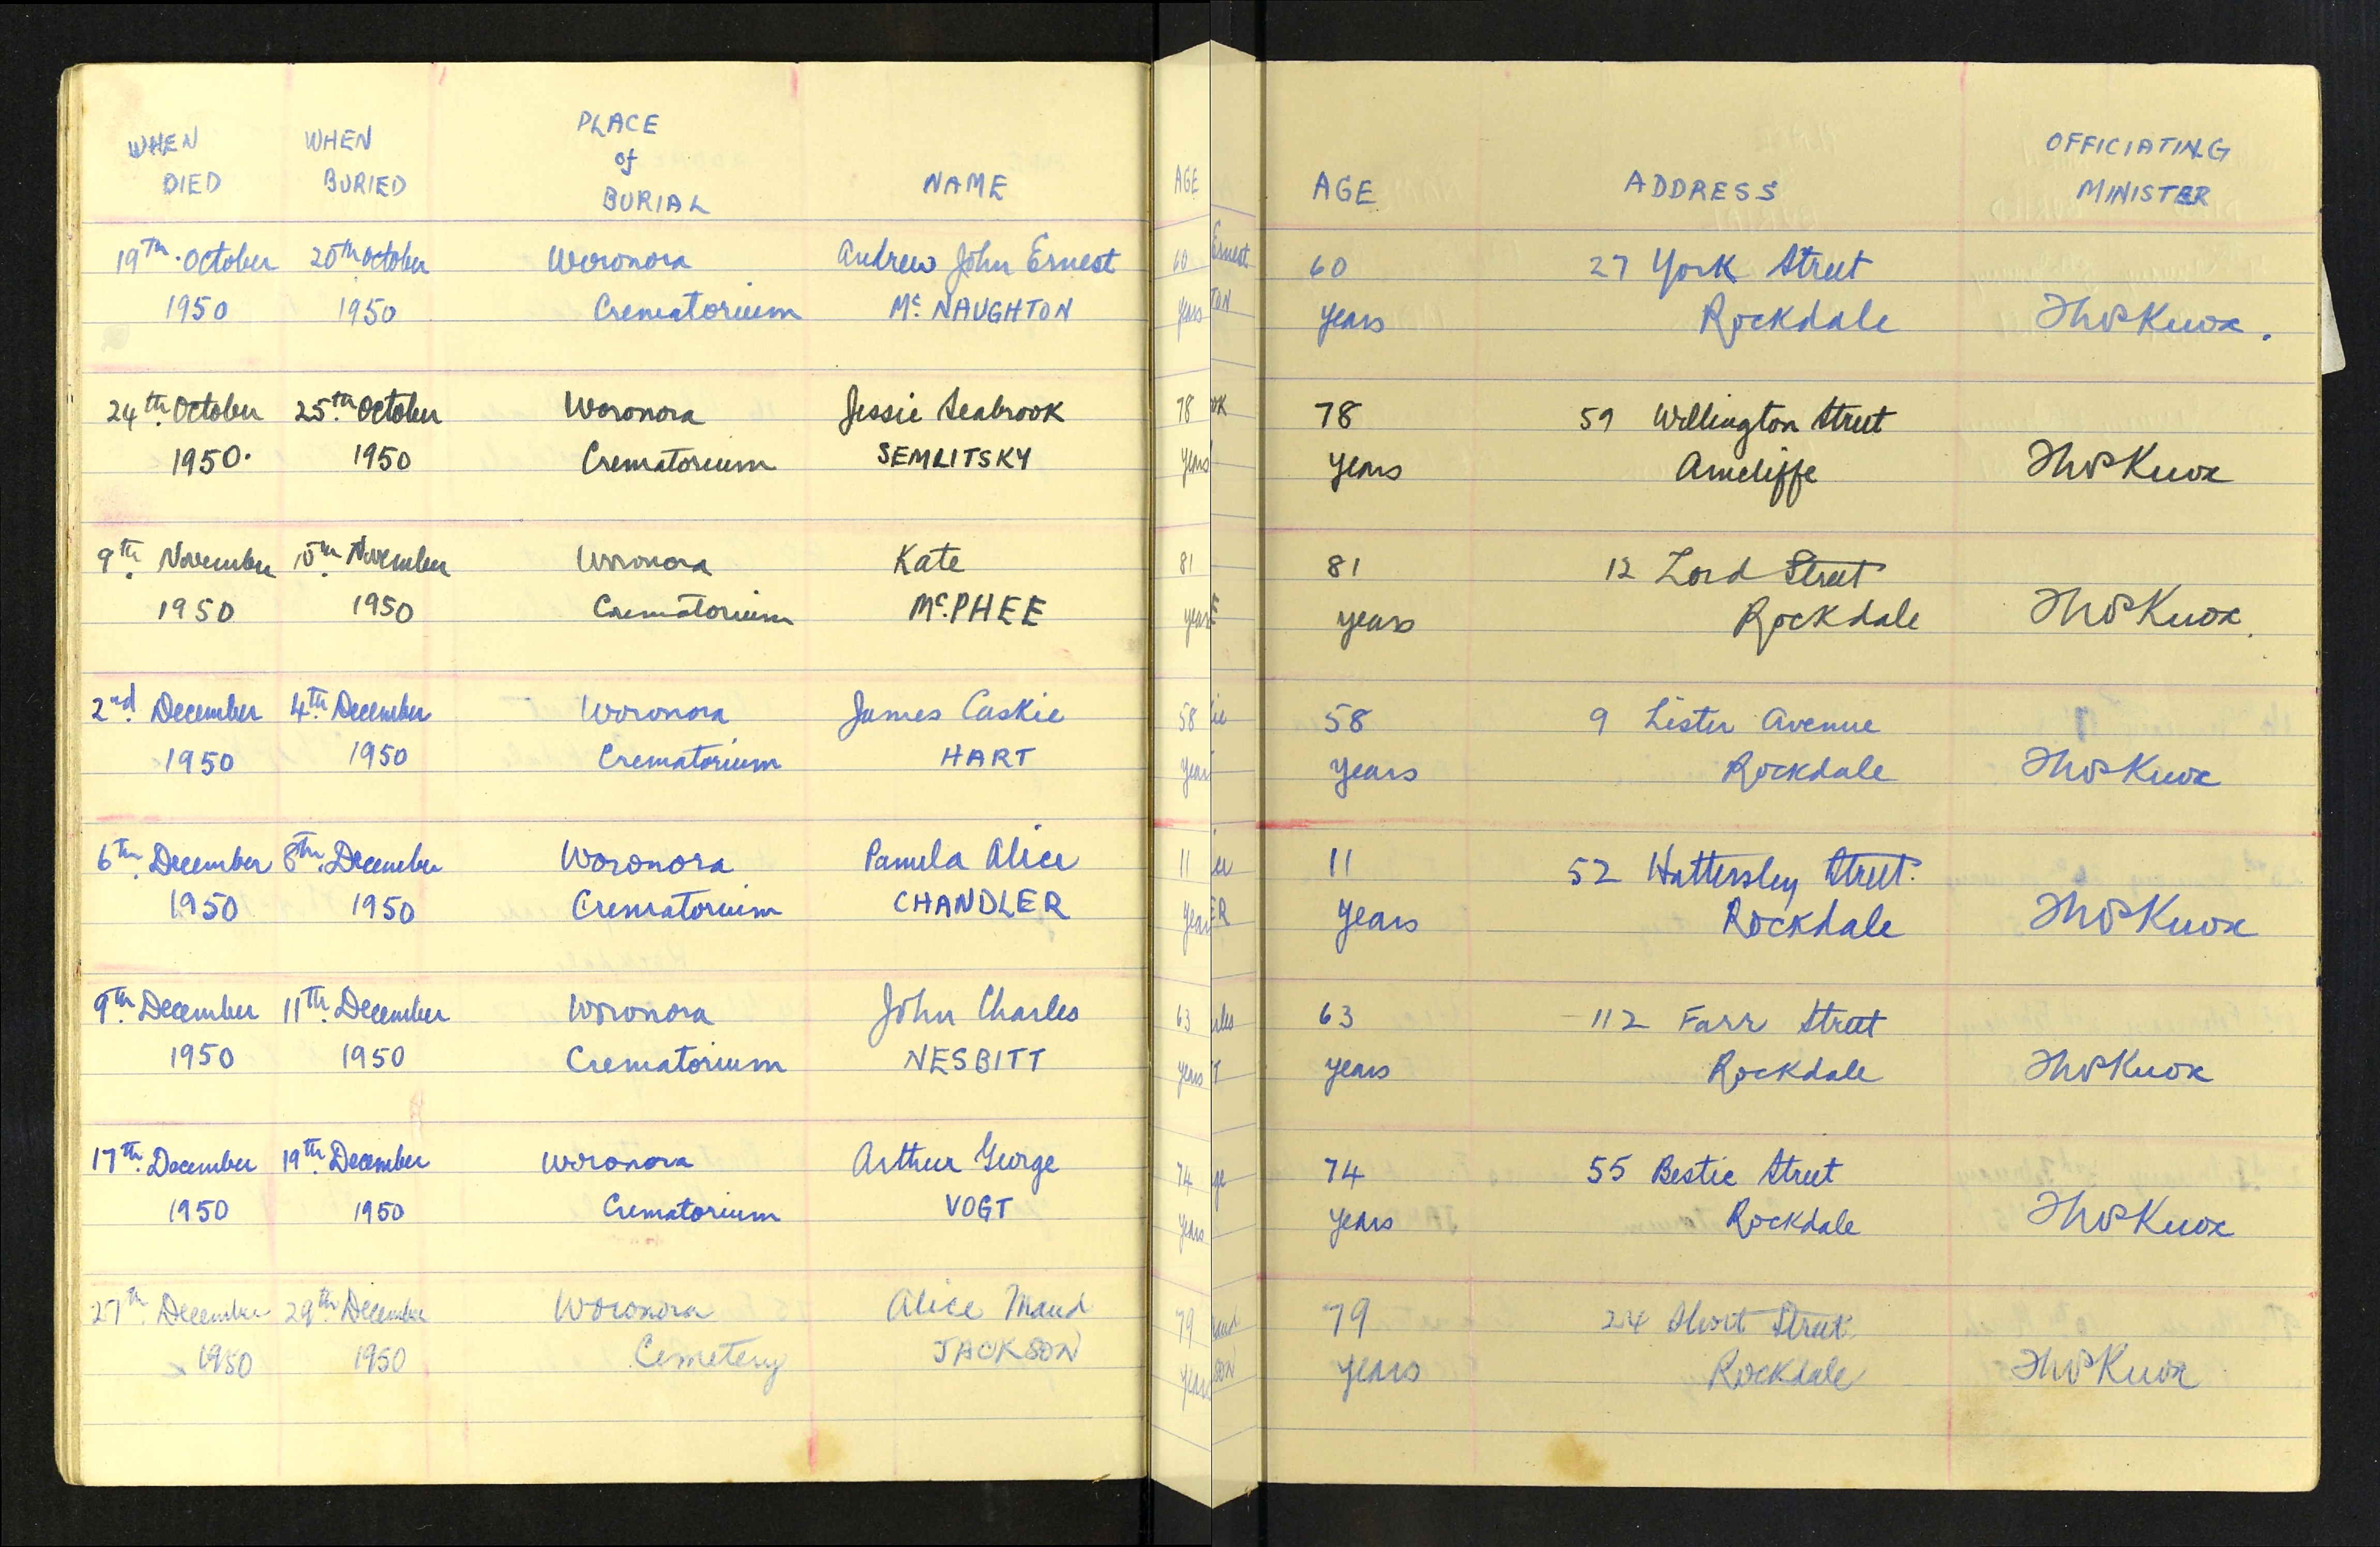 WHEN DIED WHEN BURIED PLACE of BURIAL NAME AGE ADDRESS OFFICIATING MINISTER
19th October 20th October Woronora Andrew John Ernest 60 27 York Street
1950 1950 Crematorium Mc NAUGHTON years Rockdale Thos Knox.
24th October 25th October Woronora Jessie Seabrook 78 59 Wellington Street
1950. 1950 Crematorium SEMLITSKY years Arncliffe Thos Knox
9th November 10th November Woronora Kate 81 12 Lord Street
1950 1950 Crematorium Mc.PHEE years Rockdale Thos Knox.
2nd December 4th December Woronora James Caskie 58 9 Lister Avenue
1950 1950 Crematorium HART years Rockdale Thos Knox
6th December 8th December Woronora Pamela Alice 11 52 Hattersley Street.
1950 1950 Crematorium CHANDLER years Rockdale Thos Knox
9th December 11th December Woronora John Charles 63 112 Farr Street
1950 1950 Crematorium NESBITT years Rockdale Thos Knox
17th December 19th December Woronora Arthur George 74 55 Bestic Street
1950 1950 Crematorium VOGT years Rockdale Thos Knox
27th December 29th December Woronora Alice Maud 79 24 Short Street
1950 1950 Cemetery JACKSON years Rockdale Thos Knox